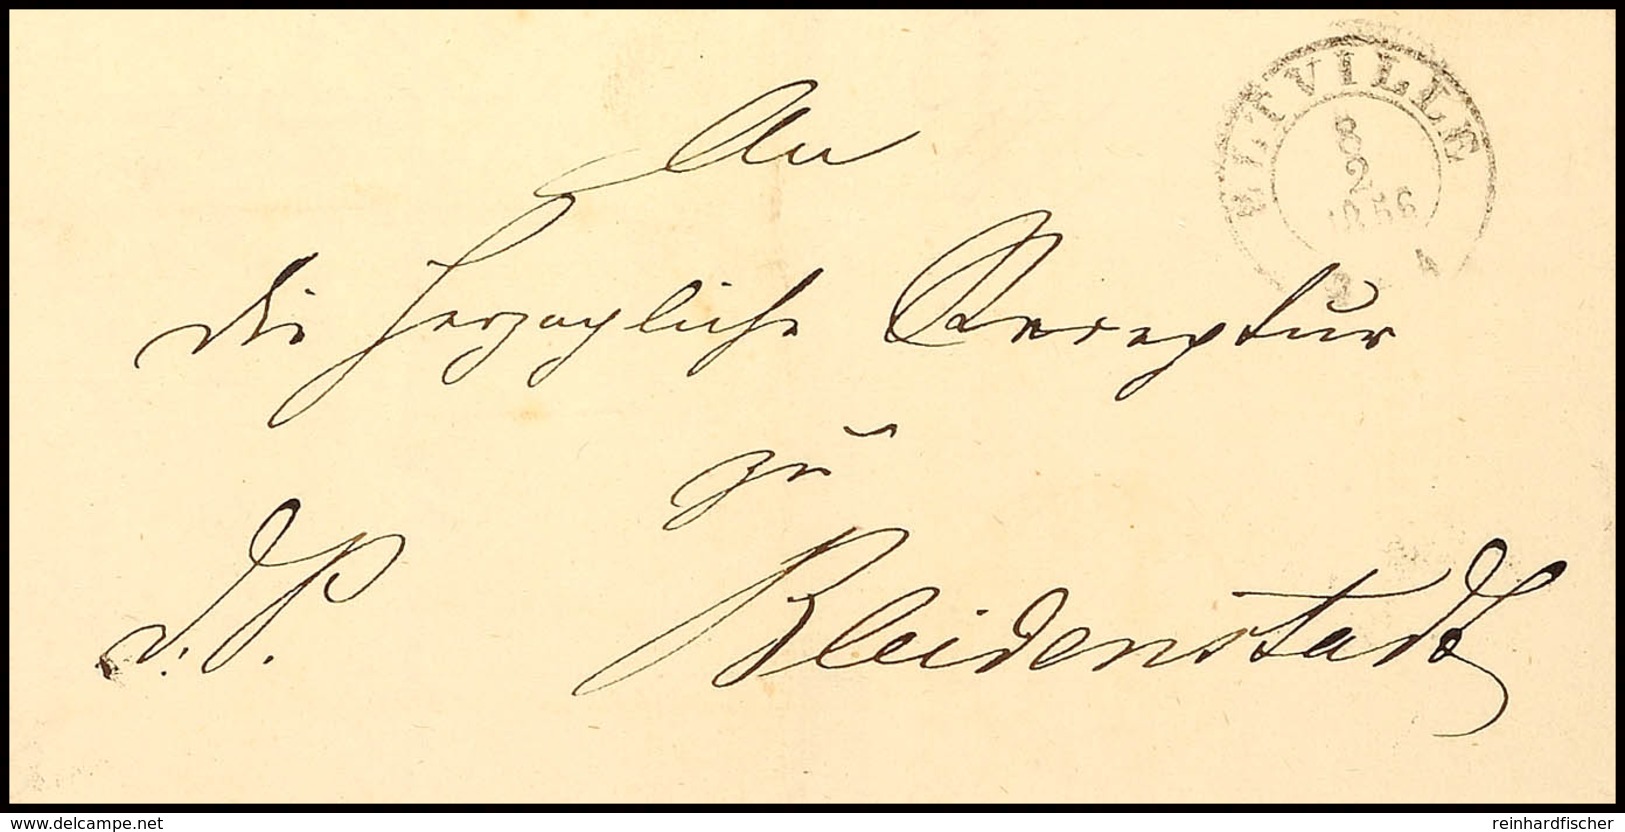 ELTVILLE
8
2
1856
An
die Herzogliche Receptur
zu
d. P.
Bleidenstadt
www.delcampe.net
reinhardfischer